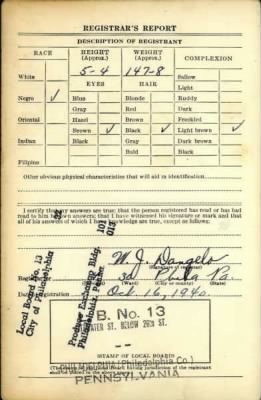 REGISTRAR'S REPORT
DESCRIPTION OF REGISTRANT
RACE HEIGHT (Approx.) WEIGHT (Approx.) COMPLEXION
White 5-4 147-8 Sallow
EYES HAIR Light
Negro ✓ Blue Blonde Ruddy
Gray Red Dark
Oriental Hazel Brown Freckled
Brown ✓ Black ✓ Light brown ✓
Indian Black Gray Dark brown
Bald Black
Filipino
Other obvious physical characteristics that will aid in identification
I certify that my answers are true; that the person registered has read or has had
read to him his own answers; that I have witnessed his signature or mark and that
all of his answers of which I have knowledge are true, except as follows:
Local Board No. 13
City of Philadelphia
Produce Exchange Bldg.
Philadelphia, Penna.
101
013
W. J. Dangelo
(Signature of registrar)
30 Phila Pa.
(Ward) (City or county) (State)
registration Oct. 16, 1940.
B. No. 13
WATER ST. BELOW
(STAMP OF LOCAL BOARD)
PENNSYLVANIA